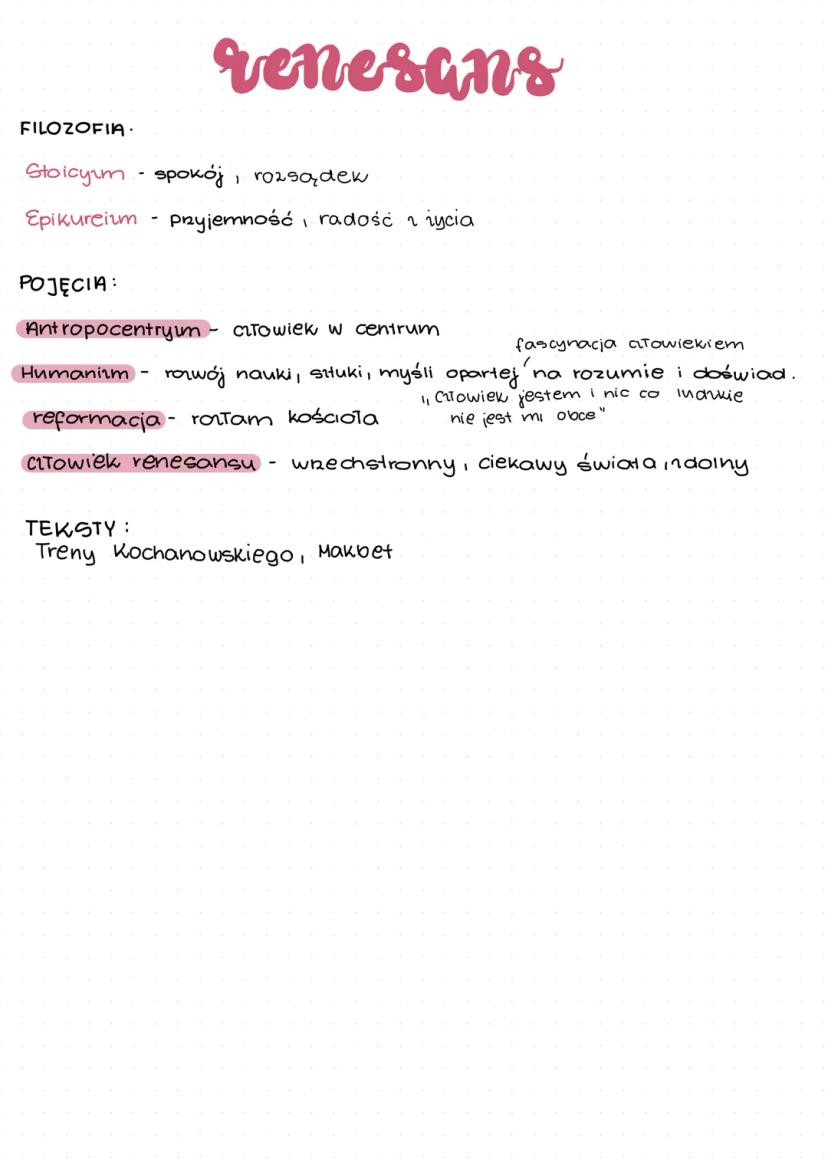 renesans
FILOZOFIA.
Stoicyzm - spokój, rozsądek
Epikureizm - przyjemność, radość z życia
POJĘCIA:
Antropocentryzm - człowiek w centrum
fascynacja człowiekiem
Humanizm - rozwój nauki, sztuki, myśli opartej na rozumie i doświad.
„Człowiek jestem i nic co ludzkie
nie jest mi obce"
reformacja - rozłam kościoła
człowiek renesansu - wszechstronny, ciekawy świata, zdolny
TEKSTY:
Treny Kochanowskiego, Makbet